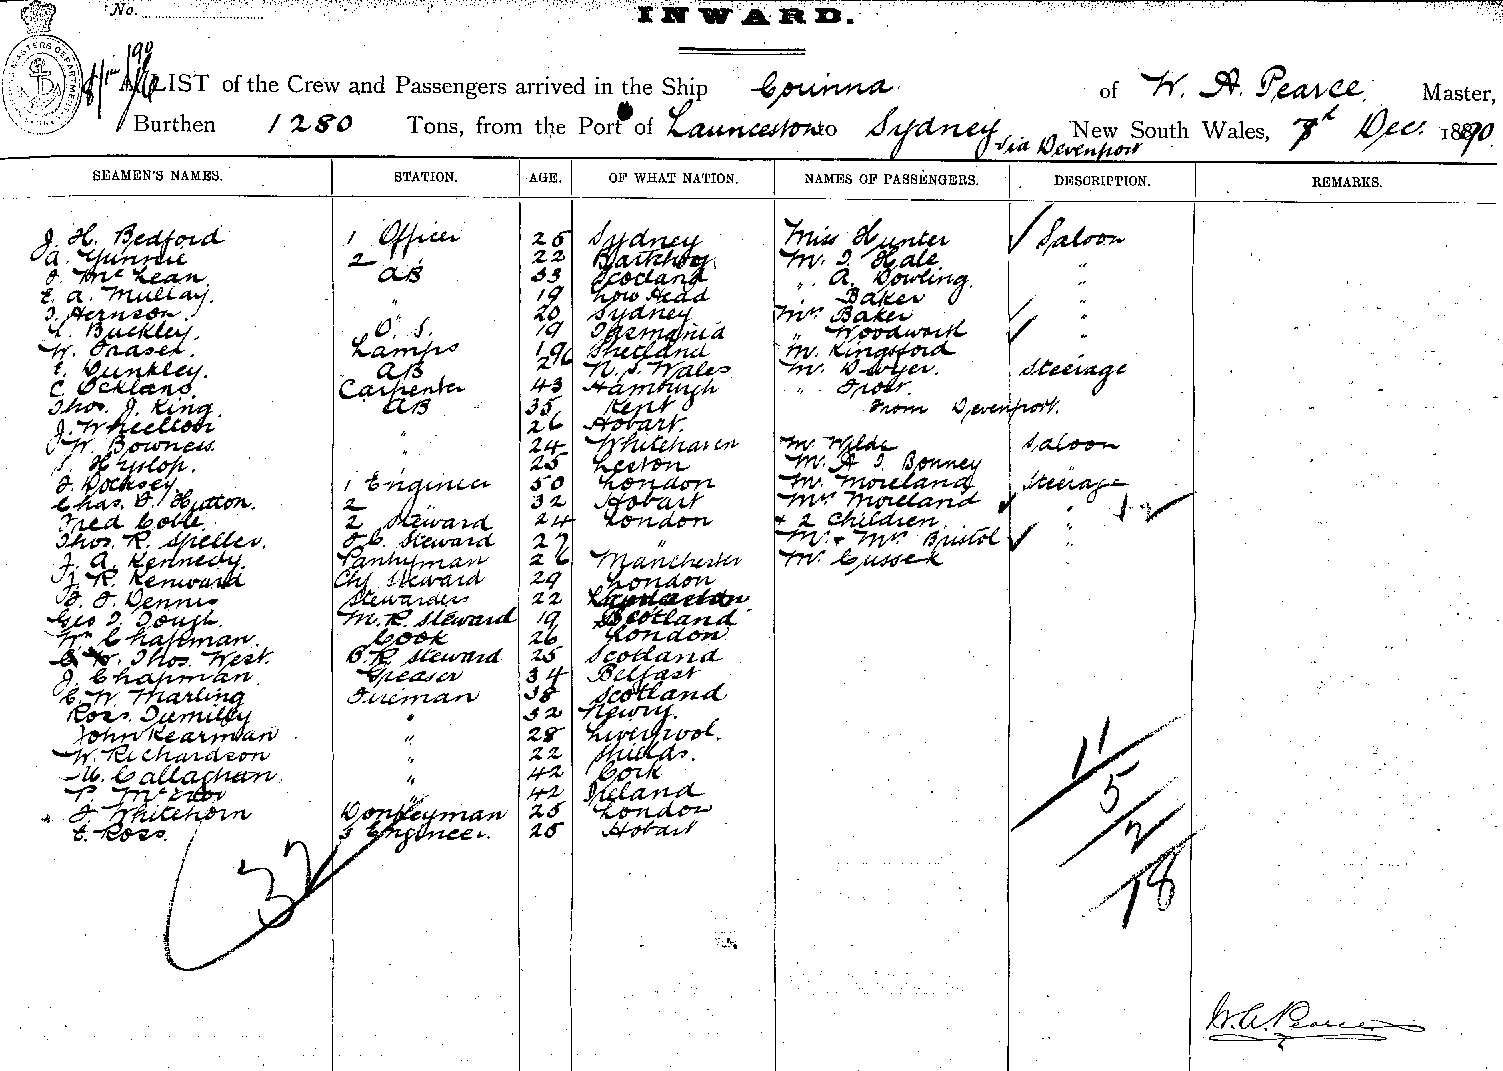 No.
INWARD.
A LIST of the Crew and Passengers arrived in the Ship Corinna of W. A. Pearce, Master,
Burthen 1280 Tons, from the Port of Launceston to Sydney New South Wales, 8th Dec. 1890
via Devenport
SEAMEN'S NAMES. STATION. AGE. OF WHAT NATION. NAMES OF PASSENGERS. DESCRIPTION. REMARKS.
J. H. Bedford 1 Officer 25 Sydney Miss Hunter Saloon
A. 2 " 22 Mr. T. Hale "
J. McLean AB 33 Scotland " A. Dowling "
E. A. Mullay. " 19 Low Head " Baker "
20 Sydney Mrs Baker "
Buckley. O. S. 19 Tasmania " Woodwork "
W. Fraser. Lamps 19 Shetland Mr. Kingsford
E. Dunkley. AB N. S. Wales Mr. Dwyer. Steerage
C. Ockland. Carpenter 43 Hamburgh " Frost. "
Thos. J. King. AB 35 Kent From Devenport.
J. Wheelton " 26 Hobart.
W. Bowness. " 24 Whitehaven Mr Wilde Saloon
Hyslop. 25 Leston Mr. A. J. Bonney
J. Docksey 1 Engineer 50 London Mr. Moreland Steerage
Chas. J. Hutton. 2 " 32 Hobart Mrs Moreland "
Fred Cobb. 2 Steward 24 London + 2 Children "
Thos. R. Speller. F.C. Steward 27 " Mr. + Mrs Bristol "
J. A. Kennedy. Pantryman 26 Manchester Mr. Cusseck
J. R. Kenward Chf Steward 29 London
J. J. Dennis Stewardess 22
Geo. J. Gough. M. R. Steward 19 Scotland
Wm Chapman. Cook 26 London
W. Thos. West. B. R. Steward 25 Scotland
J. Chapman. Greaser 34 Belfast
C. W. Marling Fireman 38 Scotland
Ross. " 32 Newry.
John Kearman " 28 Liverpool.
W. Richardson " 22 Shields.
M. Callaghan. " 42 Cork
P. " 42 Ireland
J. Whitehorn Donkeyman 25 London
E. Ross. 3 Engineer. 25 Hobart
32
11
5
2
18
W. A. Pearce